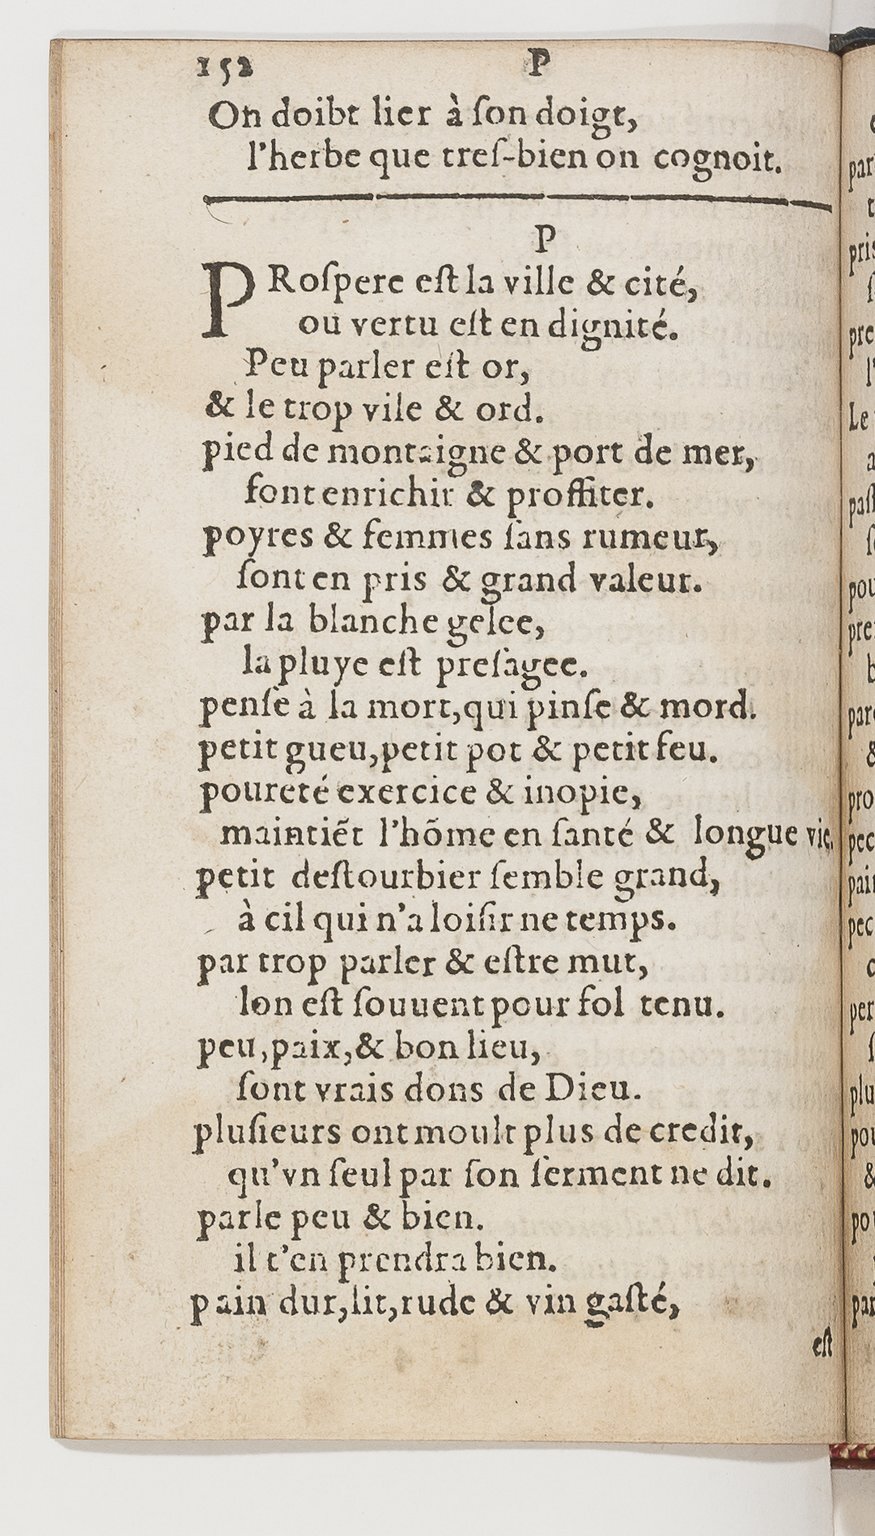 152 P
On doibt lier à ſon doigt,
l'herbe que treſ-bien on cognoit.
P
PRoſpere eſt la ville & cité,
ou vertu eſt en dignité.
Peu parler eſt or,
& le trop vile & ord.
pied de montaigne & port de mer,
font enrichir & proffiter.
poyres & femmes ſans rumeur,
ſont en pris & grand valeur.
par la blanche gelee,
la pluye eſt preſagee.
penſe à la mort,qui pinſe & mord.
petit gueu,petit pot & petit feu.
poureté exercice & inopie,
maintiẽt l'hõme en ſanté & longue vie.
petit deſtourbier ſemble grand,
à cil qui n'a loiſir ne temps.
par trop parler & eſtre mut,
lon eſt ſouuent pour fol tenu.
peu,paix,& bon lieu,
ſont vrais dons de Dieu.
pluſieurs ont moult plus de credit,
qu'vn ſeul par ſon ſerment ne dit.
parle peu & bien.
il t'en prendra bien.
pain dur,lit,rude & vin gaſté,
eſt
par
t
pris
ſ
pre
l'
Le
a
paſſ
ſ
pou
pre
b
par
&
pro
pec
pain
pec
c
per
ſ
plu
pou
&
pou
par